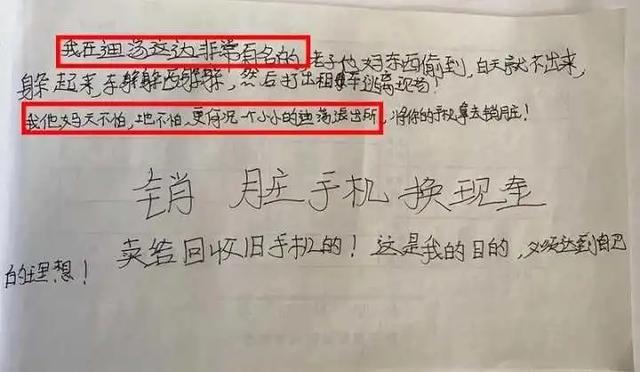 我在迪荡这达非常有名的，老子他妈东西偷到，白天就不出来，
躲起来，东躲躲西躲躲，然后打出租车逃离现场！
我他妈天不怕，地不怕，更何况一个小小的迪荡派出所，将你的手机拿去销脏！
销 脏手机 换现金
卖给回收旧手机的！这是我的目的，必须达到自己
的理想！